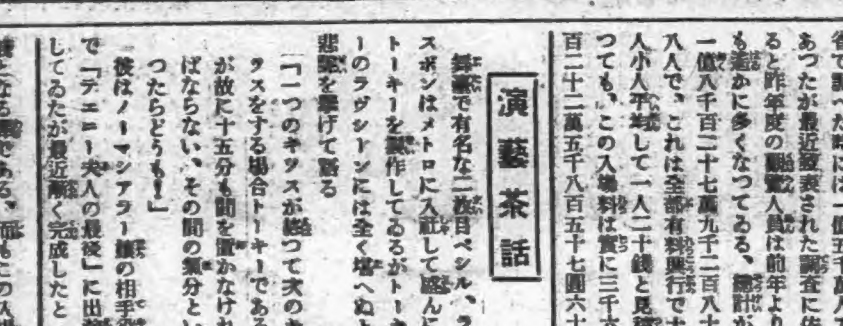 省で調べた時には一億五千萬人
あつたが最近發表された調査に依
ると昨年度の觀覽人員は前年より
も遙かに多くなつてゐる、總計が
一億八千百二十七萬九千二百八十
八人で、これは全部有料興行で大
人小人平均して一人二十錢と見
つても、この入場料は實に三千六
百二十二萬五千八百五十七圓六十
演藝茶話
舞臺で有名な二枚目ベシル、ラ
スボンはメトロに入社して盛んに
トーキーを製作してゐるがトーキ
ーのラヴシーンには全く堪へぬと
悲鳴を擧げて語る
「一つのキツスが終つて次のキ
ツスをする場合トーキーである
が故に十五分も間を置かなけれ
ばならない、その間の氣分とい
つたらどうも!」
彼はノーマシアラー孃の相手役
で「チエニー夫人の最後」に出
してゐたが最近漸く完成したと
となる である、 もこの入場